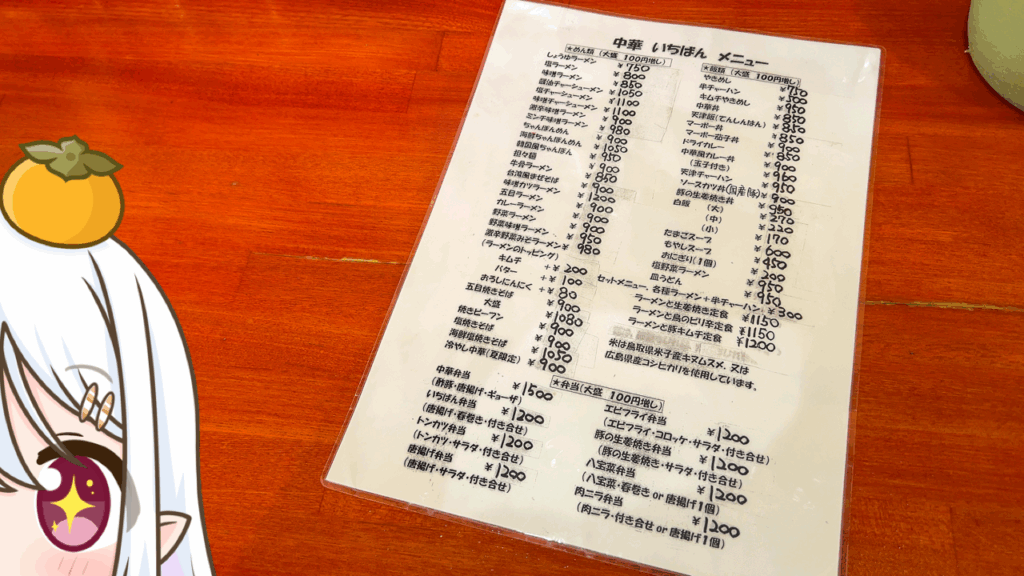 中華 いちばん メニュー
★めん類 (大盛 100円増し)
しょうゆラーメン ¥750
塩ラーメン ¥800
味噌ラーメン ¥850
醤油チャーシューメン ¥1050
塩チャーシューメン ¥1100
味噌チャーシューメン ¥1100
激辛味噌ラーメン ¥900
ミンチ味噌ラーメン ¥980
ちゃんぽんめん ¥900
海鮮ちゃんぽんめん ¥1050
韓国風ちゃんぽん ¥950
担々麺 ¥900
牛骨ラーメン ¥850
台湾風まぜそば ¥900
味噌カツラーメン ¥1200
五目ラーメン ¥900
カレーラーメン ¥900
野菜ラーメン ¥900
野菜味噌ラーメン ¥950
激辛野菜みそラーメン ¥980
(ラーメンのトッピング)
キムチ +¥200
バター +¥100
おろしにんにく +¥80
五目焼きそば ¥900
大盛 ¥1080
焼きビーフン ¥900
塩焼きそば ¥900
海鮮塩焼きそば ¥1050
冷やし中華(夏限定) ¥900
★飯類 (大盛 100円増し)
やきめし ¥750
串チャーハン ¥500
キムチやきめし ¥950
中華丼 ¥850
天津飯(てんしんはん) ¥850
マーボー丼 ¥850
マーボー茄子丼 ¥850
ドライカレー ¥900
中華風カレー丼 ¥850
(玉子付き)
天津チャーハン ¥900
ソースカツ丼(国産豚) ¥950
豚の生姜焼き丼 ¥950
白飯 (大) ¥250
(中) ¥270
(小) ¥220
たまごスープ ¥170
もやしスープ ¥600
おにぎり(1個) ¥450
塩野菜ラーメン ¥200
皿うどん ¥950
セットメニュー、各種ラーメン+串チャーハン ¥300
ラーメンと生姜焼き定食 ¥1150
ラーメンと鳥のピリ辛定食 ¥1150
ラーメンと豚キムチ定食 ¥1200
米は鳥取県米子産キヌムスメ、又は
広島県産コシヒカリを使用しています。
★弁当(大盛 100円増し)
中華弁当 ¥1500
(酢豚・唐揚げ・ギョーザ)
いちばん弁当 ¥1200
(唐揚げ・春巻き・付き合せ)
トンカツ弁当 ¥1200
(トンカツ・サラダ・付き合せ)
唐揚げ弁当 ¥1200
(唐揚げ・サラダ・付き合せ)
エビフライ弁当 ¥1200
(エビフライ・コロッケ・サラダ・付き合せ)
豚の生姜焼き弁当 ¥1200
(豚の生姜焼き・サラダ・付き合せ)
八宝菜弁当 ¥1200
(八宝菜・春巻き or 唐揚げ1個)
肉ニラ弁当 ¥1200
(肉ニラ・付き合せ or 唐揚げ1個)